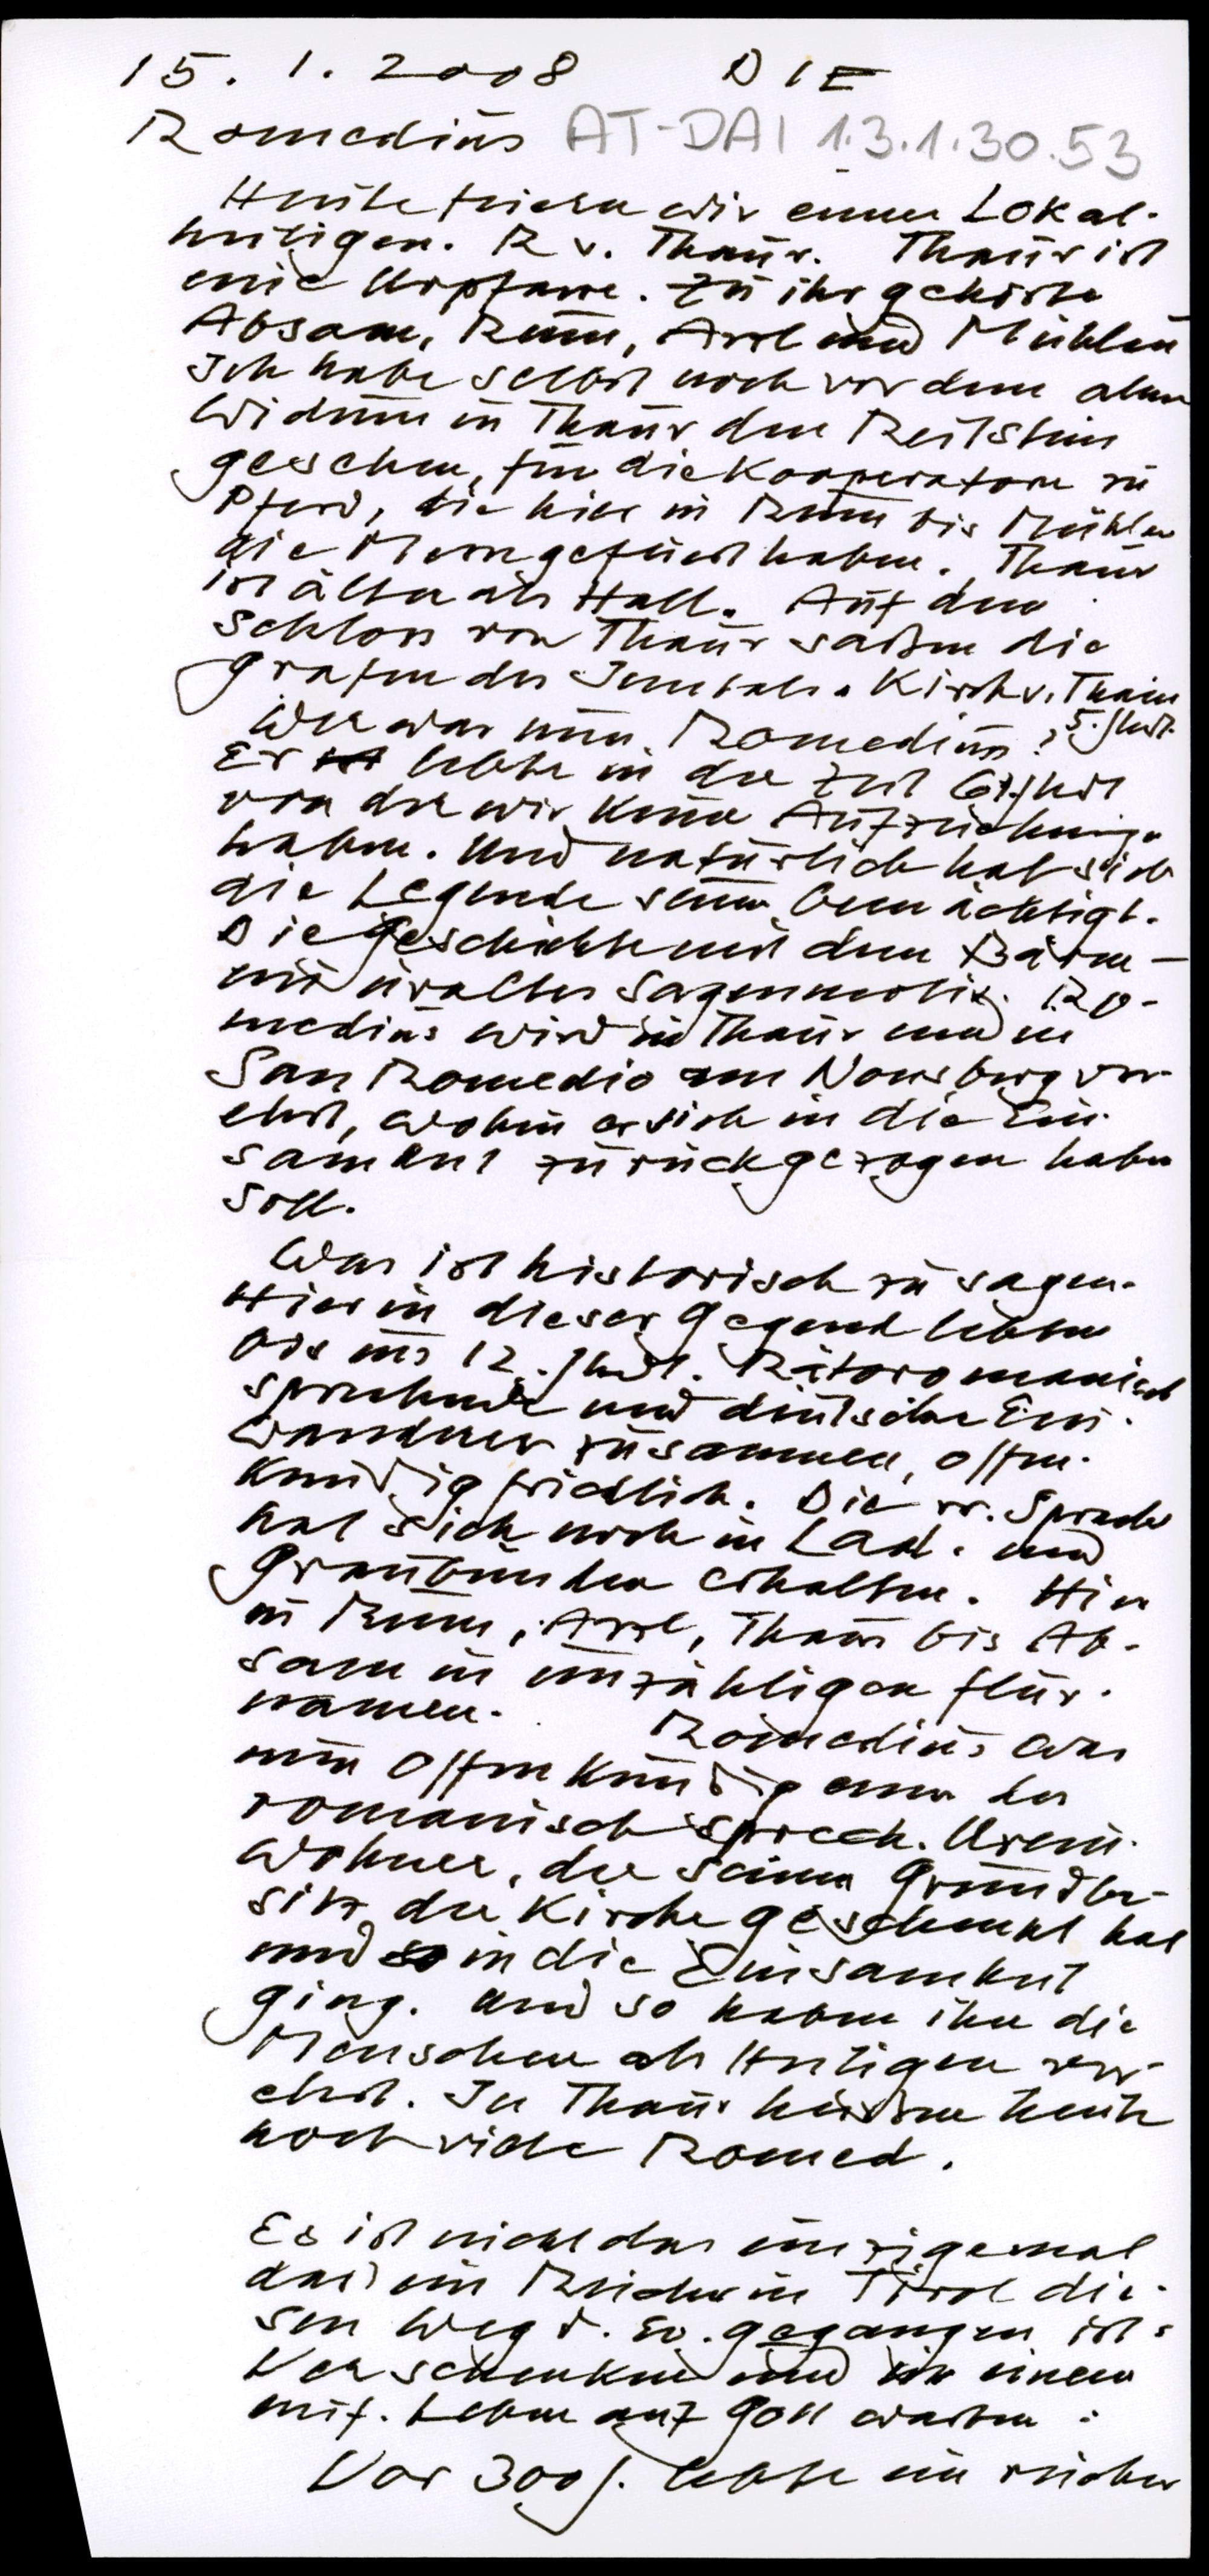 15. 1. 2008 DIE
Romedius AT-DAI 1.3.1.30.53
Heute feiern wir einen Lokal-
heiligen. R v. Thaur. Thaur ist
eine Urpfarre. Zu ihr gehörte
Absam, Rum, Arzl und Mühlau
Ich habe selbst noch vor dem alten
Widum in Thaur den Reitstein
gesehen, für die Kooperatoren zu
Pferd, die hier in Rum bis Mühlau
die Messe gefeiert haben. Thaur
ist älter als Hall. Auf dem
Schloss von Thaur saßen die
Grafen des Inntals. Kirche v. Thaur
5. Jhdt.
Wer war nun Romedius?
Er lebte in der Zeit 6/7. Jhdt
von der wir keine Aufzeichnungen
haben. Und natürlich hat sich
die Legende seiner bemächtigt.
Die Geschichte mit dem Bären -
ein uraltes Sagenmotiv. Ro-
medius wird in Thaur und in
San Romedio am Nonsberg ver-
ehrt, wohin er sich in die Ein-
samkeit zurückgezogen haben
soll.
Was ist historisch zu sagen.
Hier in dieser Gegend lebten
bis ins 12. Jhdt. Rätoromanisch
sprechende und deutsche Ein-
wanderer zusammen, offen-
kundig friedlich. Die rr. Sprache
hat sich noch in Lad. und
Graubünden erhalten. Hier
in Rum, Arzl, Thaur bis Ab-
sam in unzähligen Flur-
namen. Romedius war
nun offenkundig einer der
romanisch sprech. Urein-
wohner, der seinen Grundbe-
sitz der Kirche geschenkt hat
und so in die Einsamkeit
ging. Und so haben ihn die
Menschen als Heiligen ver-
ehrt. In Thaur heißen heute
noch viele Romed.
Es ist nicht das einzigemal
dass ein Reicher in Tirol die-
sen Weg d. Ev. gegangen ist:
Verschenken und in einem
einf. Leben auf Gott warten:
Vor 300 J. lebte ein reicher